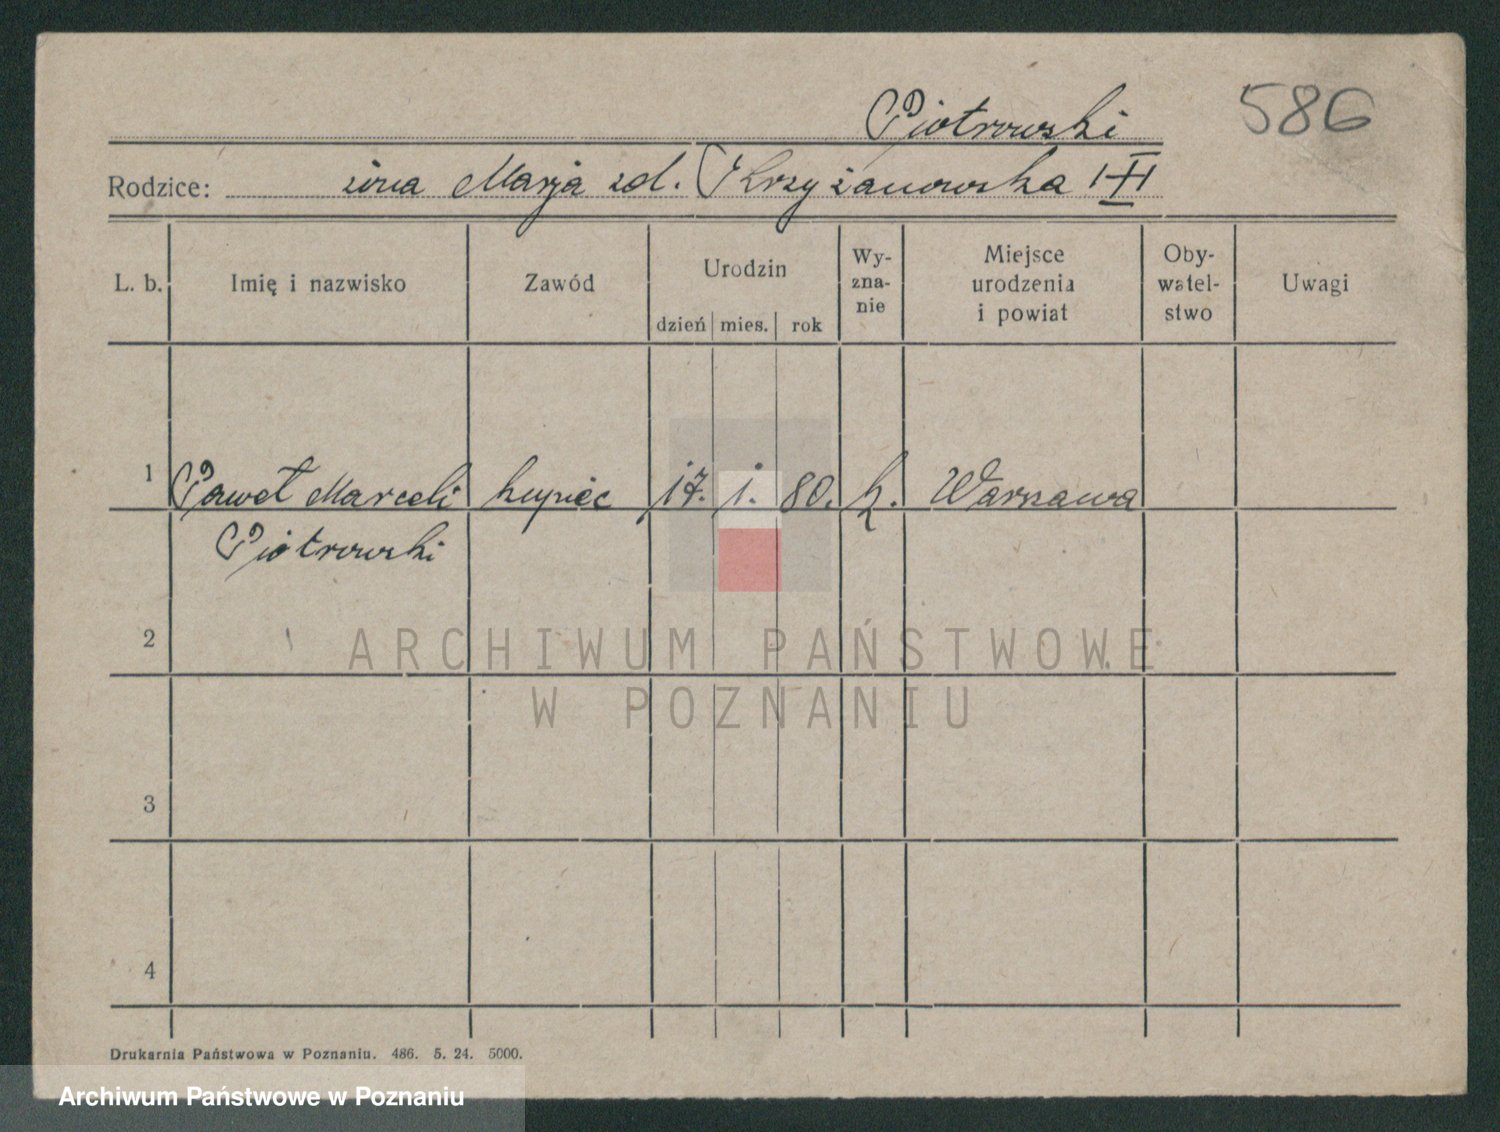 Piotrowski 586
Rodzice: żona Marja zd. Krzyżanowska
L. b. Imię i nazwisko Zawód Urodzin dzień mies. rok Wyznanie Miejsce urodzenia i powiat Obywatelstwo Uwagi
1 Paweł Marceli kupiec 17. 1. 80. k. Warszawa
Piotrowski
2
ARCHIWUM PAŃSTWOWE
W POZNANIU
3
4
Drukarnia Państwowa w Poznaniu. 486. 5. 24. 5000.
Archiwum Państwowe w Poznaniu